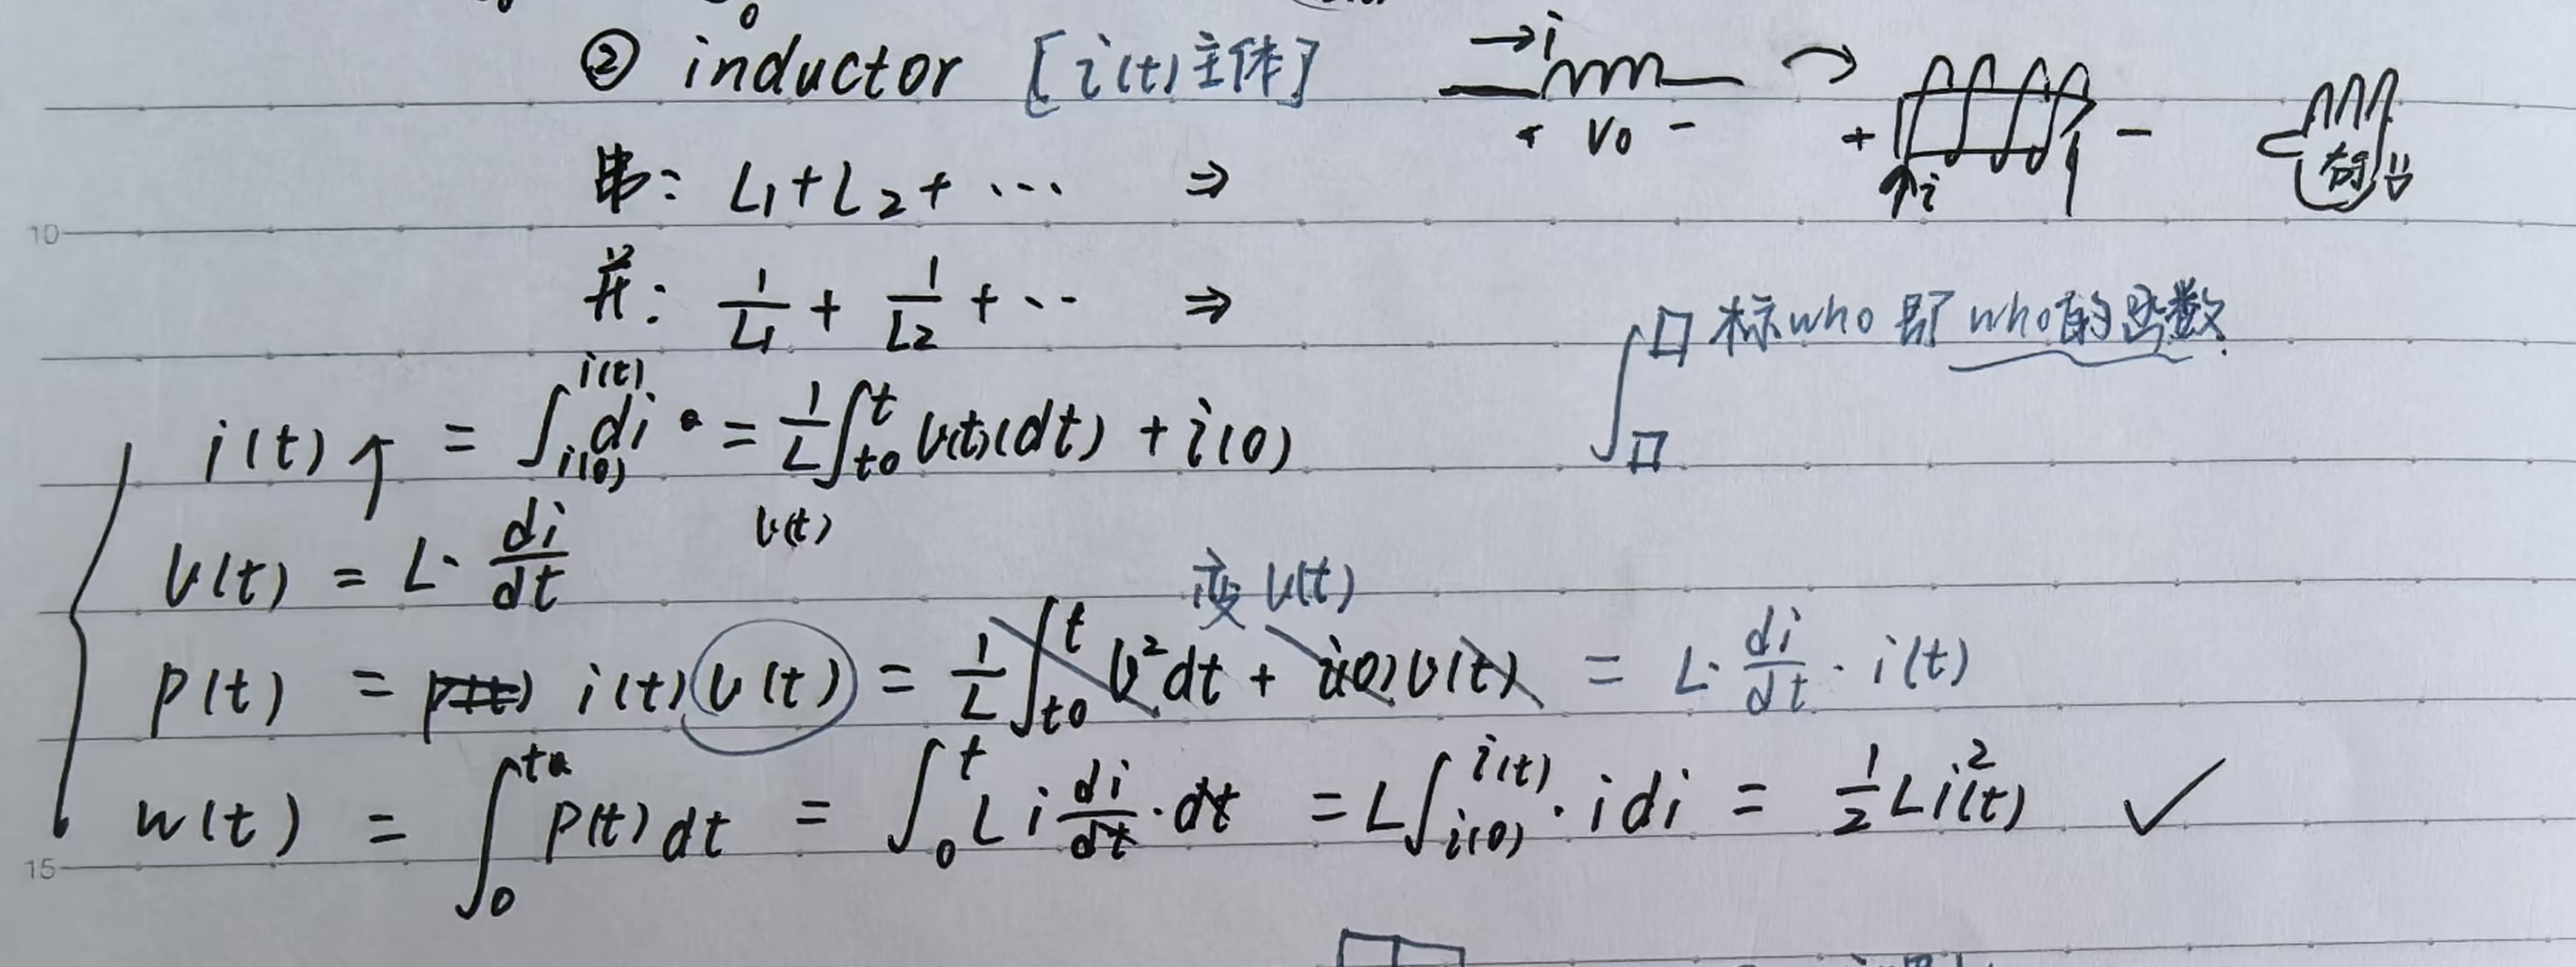 ② inductor [i(t)主体] →i + V0 - + ↑i - 右手
串: L1+L2+ ··· ⇒
10
并: 1/L1 + 1/L2 + ··· ⇒
∫□^□ 标who 即 who的函数
i(t) = ∫_{i(0)}^{i(t)} di = 1/L ∫_{t0}^{t} v(t)(dt) + i(0)
v(t)
v(t) = L· di/dt
变 v(t)
p(t) = i(t) v(t) = 1/L ∫_{t0}^{t} v² dt + i(0)v(t) = L· di/dt · i(t)
w(t) = ∫_0^{t} p(t) dt = ∫_0^t L i di/dt · dt = L∫_{i(0)}^{i(t)} · i di = 1/2 L i²(t) ✓
15